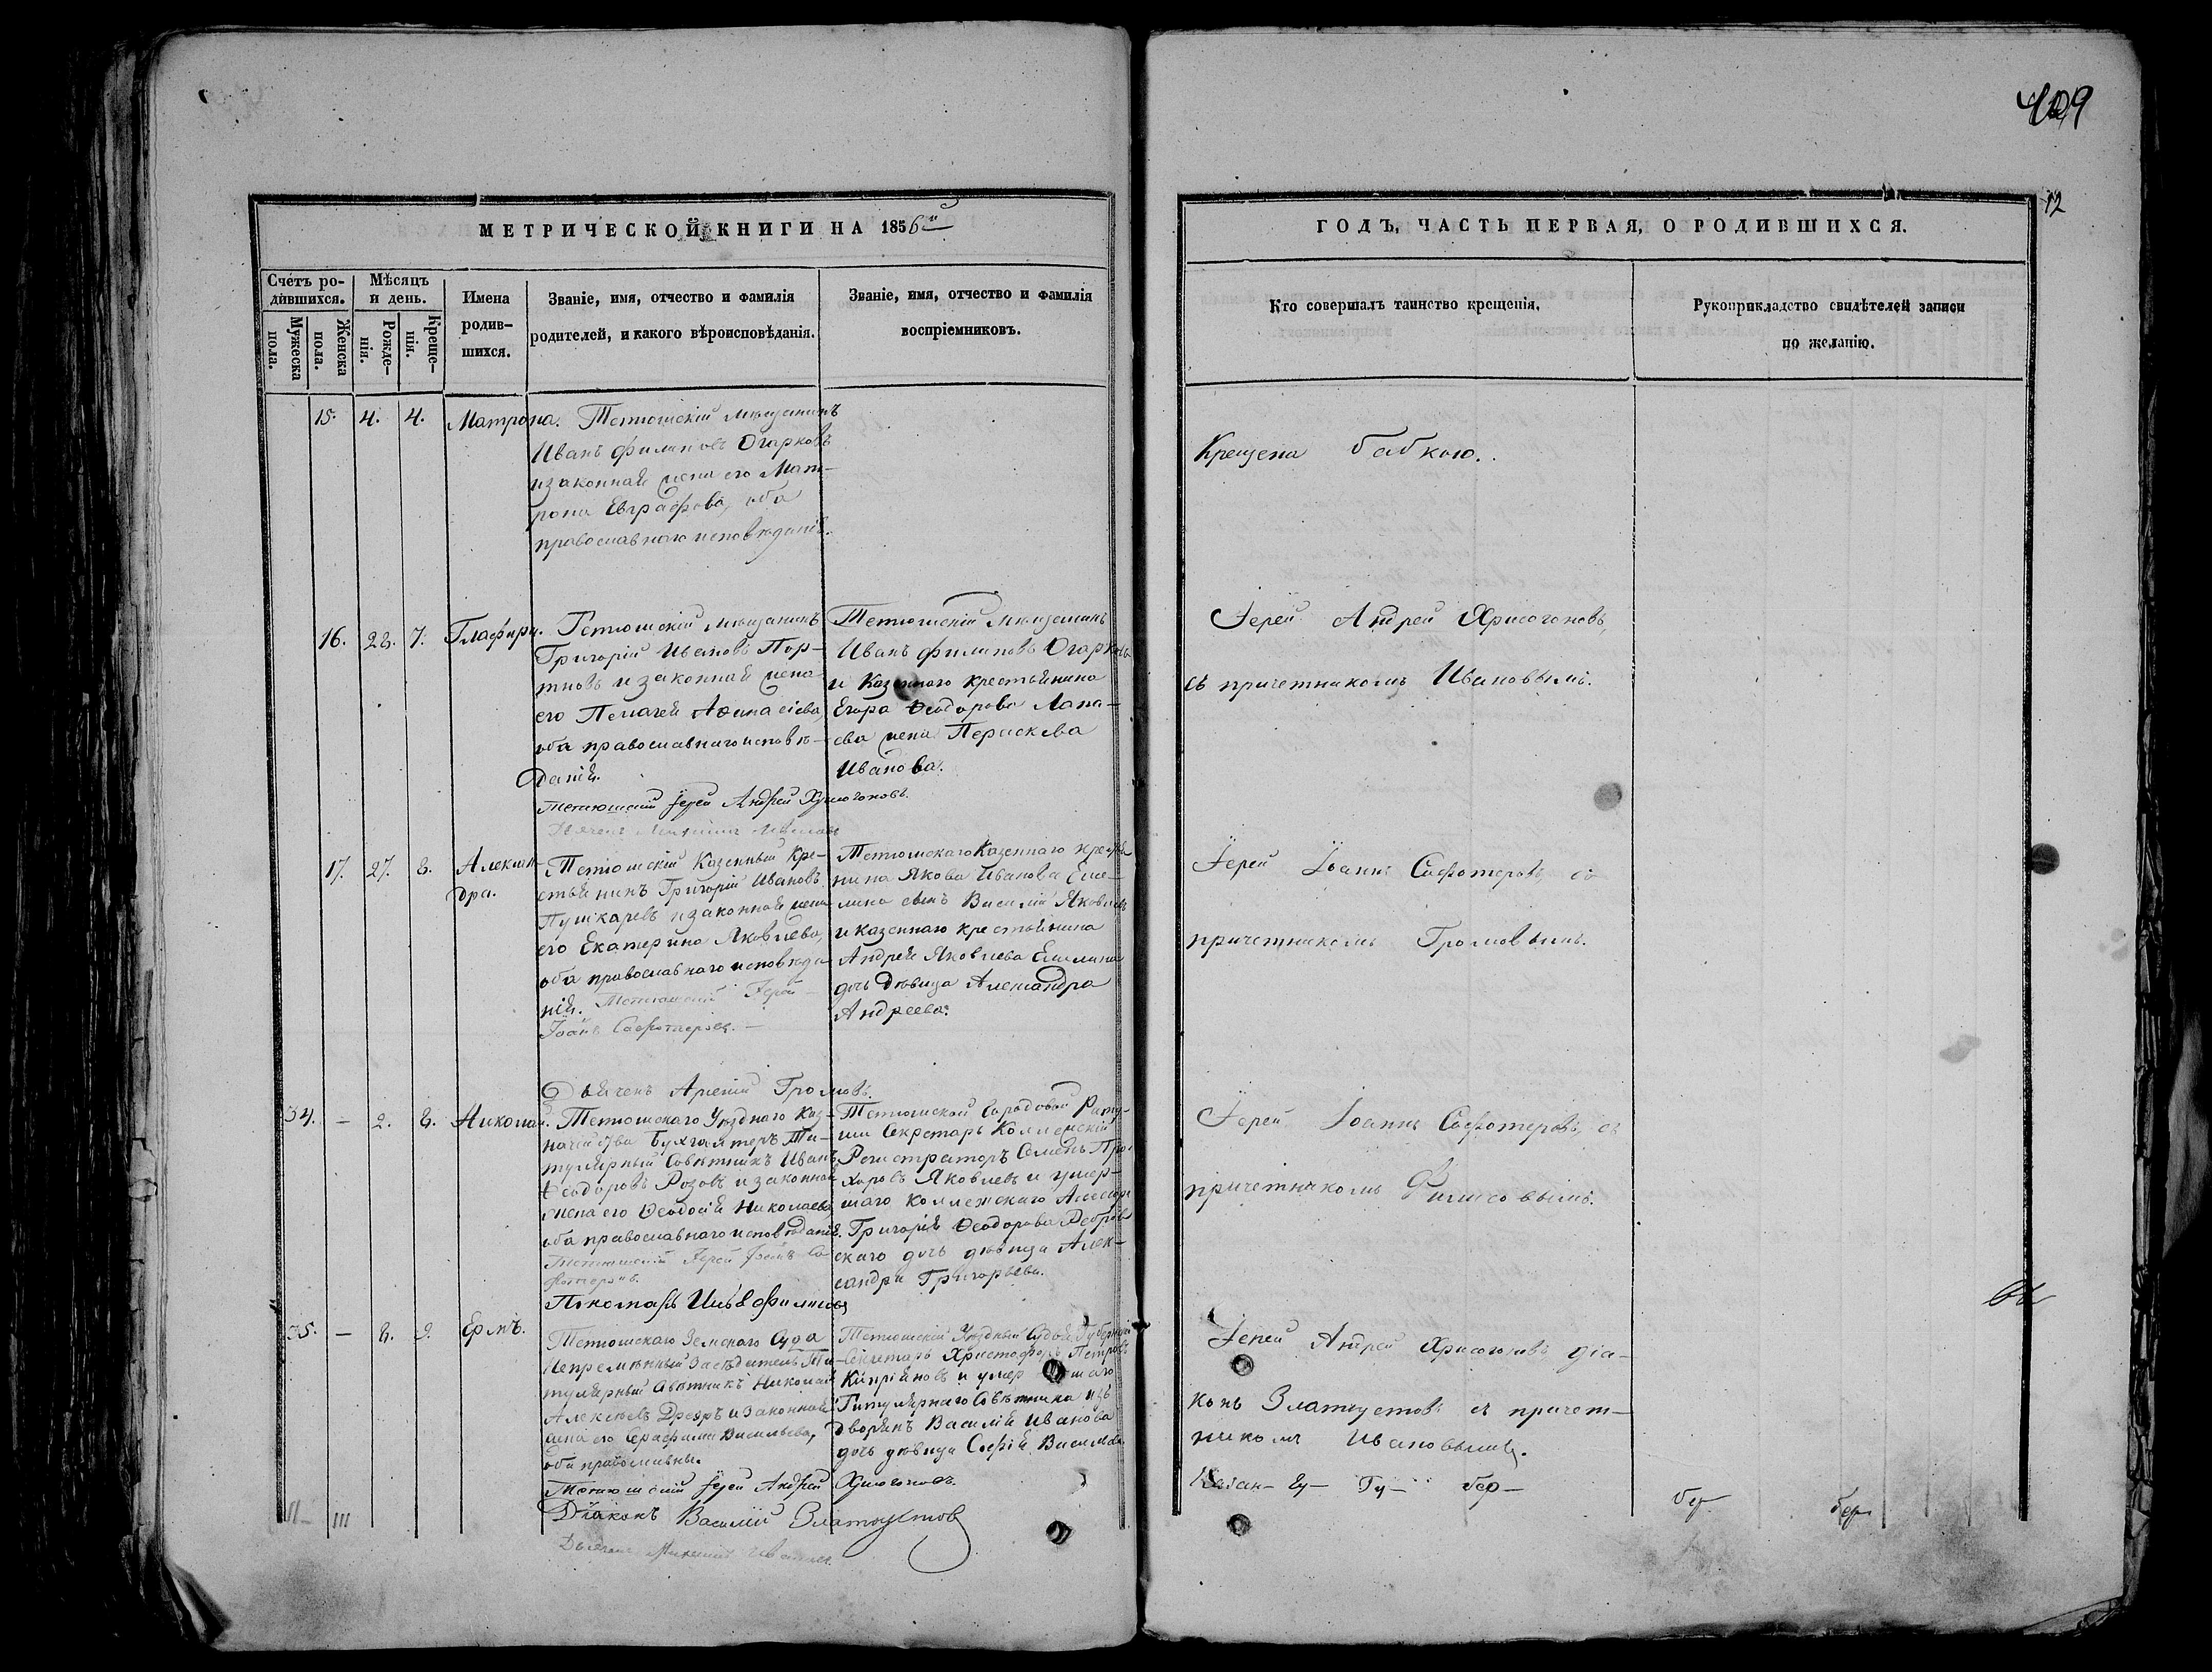 409
12
МЕТРИЧЕСКОЙ КНИГИ НА 1856й
ГОДЪ, ЧАСТЬ ПЕРВАЯ, О РОДИВШИХСЯ.
Счетъ ро-
дившихся.
Мужеска
пола.
Женска
пола.
Мѣсяцъ
и день.
Рожде-
нія.
Креще-
нія.
Имена
родив-
шихся.
Званіе, имя, отчество и фамилія
родителей, и какого вѣроисповѣданія.
Званіе, имя, отчество и фамилія
воспріемниковъ.
Кто совершалъ таинство крещенія.
Рукоприкладство свидѣтелей записи
по желанію.
15. 4. 4. Матрона.
Тетюшскій мѣщанинъ
Иванъ Филиповъ Огарковъ
и законная жена его Мат-
рона Евграфова, оба
православнаго исповѣданія.
Крещена бабкою.
16. 28. 7. Глафира.
Тетюшскій мѣщанинъ
Григорій Ивановъ Пор-
тновъ и законная жена
его Пелагея Аѳинасіева,
оба православнаго исповѣ-
данія.
Тетюшскій Іерей Андрей Хрисогоновъ.
Тетюшскій мѣщанинъ
Иванъ Филиповъ Огарковъ
и Казеннаго крестьянина
Егора Ѳеодорова Лапа-
ева жена Параскева
Иванова.
Іерей Андрей Хрисогоновъ,
съ причетникомъ Ивановымъ.
17. 27. 8. Алексан-
дра.
Тетюшскій Казенный кре-
стьянинъ Григорій Ивановъ
Пушкаревъ и законная жена
его Екатерина Яковлева,
оба православнаго исповѣда-
нія. Тетюшскій Іерей
Іоаннъ Сафотеровъ.
Дьячекъ Арсеній Громовъ.
Тетюшскаго Казеннаго крестья
нина Якова Иванова Еме-
лина сынъ Василій Яковлевъ
и казеннаго крестьянина
Андрея Яковлева Емелина
дочь дѣвица Александра
Андреева.
Іерей Іоаннъ Сафотеровъ съ
причетникомъ Громовымъ.
34. — 2. 8. Николай.
Тетюшскаго Уѣзднаго Каз-
начейства Бухгалтеръ Ти-
тулярный Совѣтникъ Иванъ
Ѳеодоровъ Розовъ и законная
жена его Ѳеодосія Николаева,
оба православнаго исповѣданія.
Тетюшскій Іерей Іоаннъ Са-
фотеровъ.
Пономарь Илья Филисовъ
Тетюшской Городовой Рату-
ши Секретарь Коллежскій
Регистраторъ Семенъ Про-
хоровъ Яковлевъ и умер-
шаго Коллежскаго Ассесора
Григорія Ѳеодорова
скаго дочь дѣвица Алек-
сандра Григорьева.
Іерей Іоаннъ Сафотеровъ, съ
причетникомъ Филисовымъ.
35. — 8. 9. Ермъ.
Тетюшскаго Земскаго Суда
Непремѣнный Засѣдатель Ти-
тулярный Совѣтникъ Николай
Алексѣевъ и законная
жена его Серафима Васильева,
оба православны.
Тетюшскій Іерей Андрей Хрисогоновъ.
Діаконъ Василій Златоустов
Тетюшскій Уѣздный Судья Губернскій
Секретарь Христофоръ Петровъ
Кипріяновъ и умершаго
Титулярнаго Совѣтника изъ
Дворянъ Василія Иванова
дочь дѣвица Софія Васильева
Іерей Андрей Хрисогоновъ діа-
конъ Златоустовъ съ причет-
никомъ Ивановымъ.